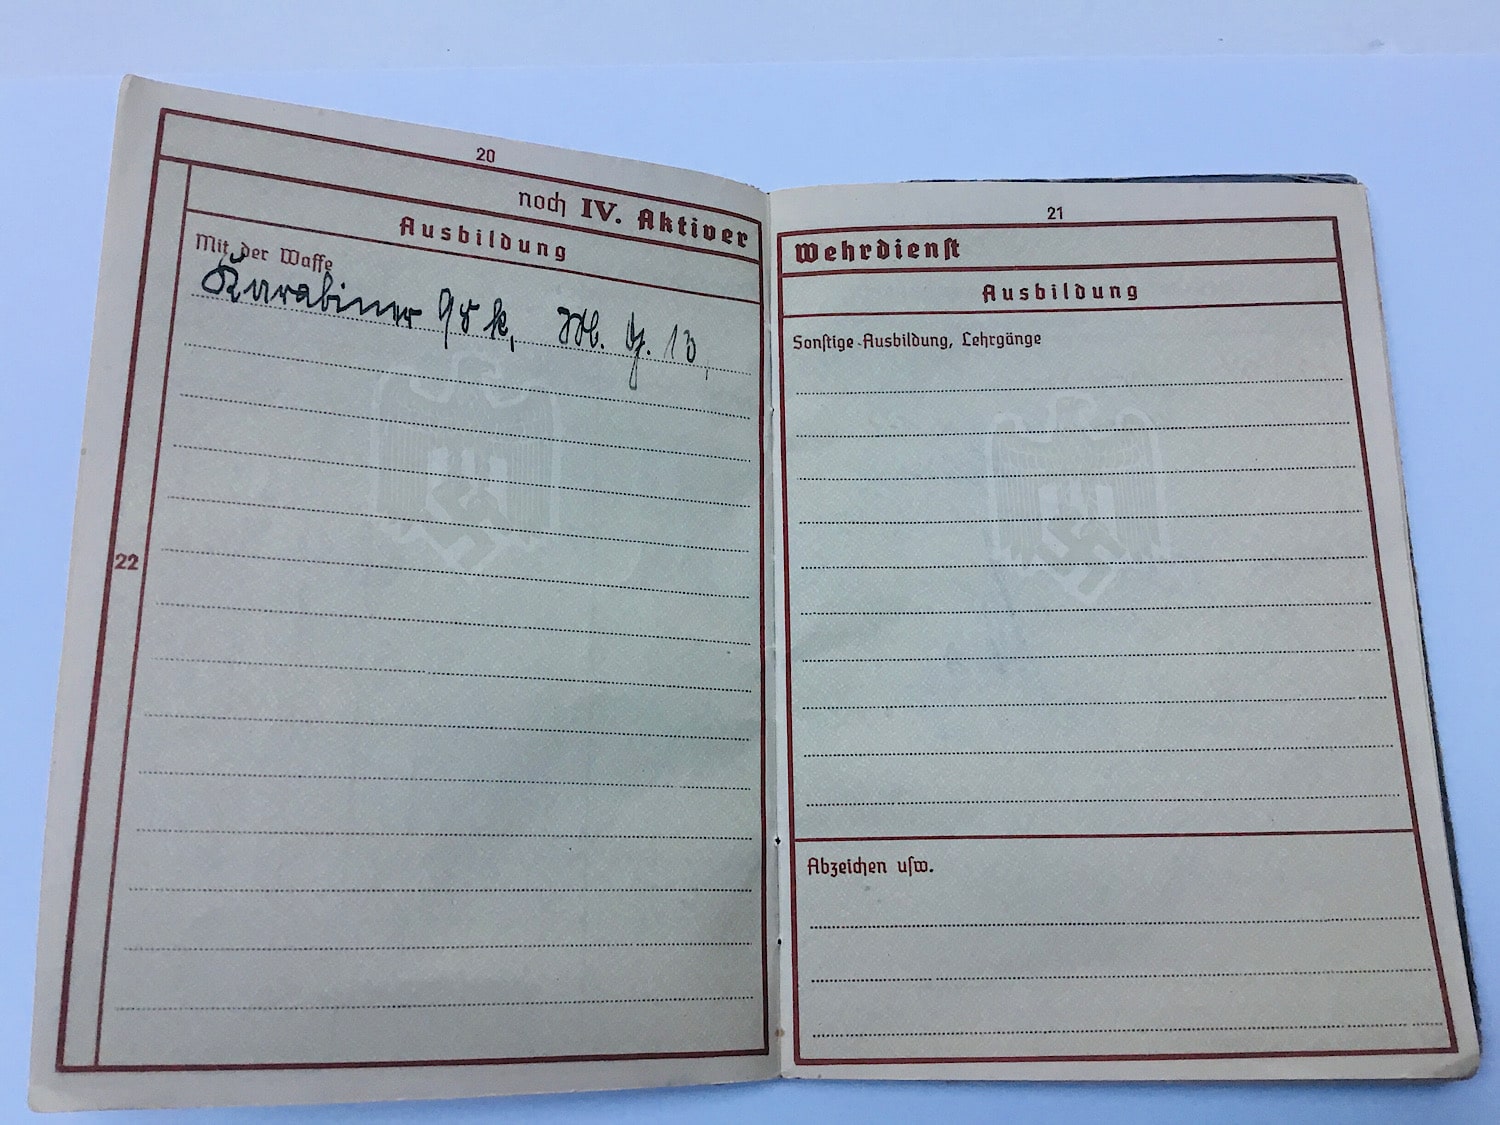 20
noch IV. Aktiver
Ausbildung
Mit der Waffe
Karabiner 98 k, M. G. 13,
22
21
Wehrdienst
Ausbildung
Sonstige Ausbildung, Lehrgänge
Abzeichen usw.